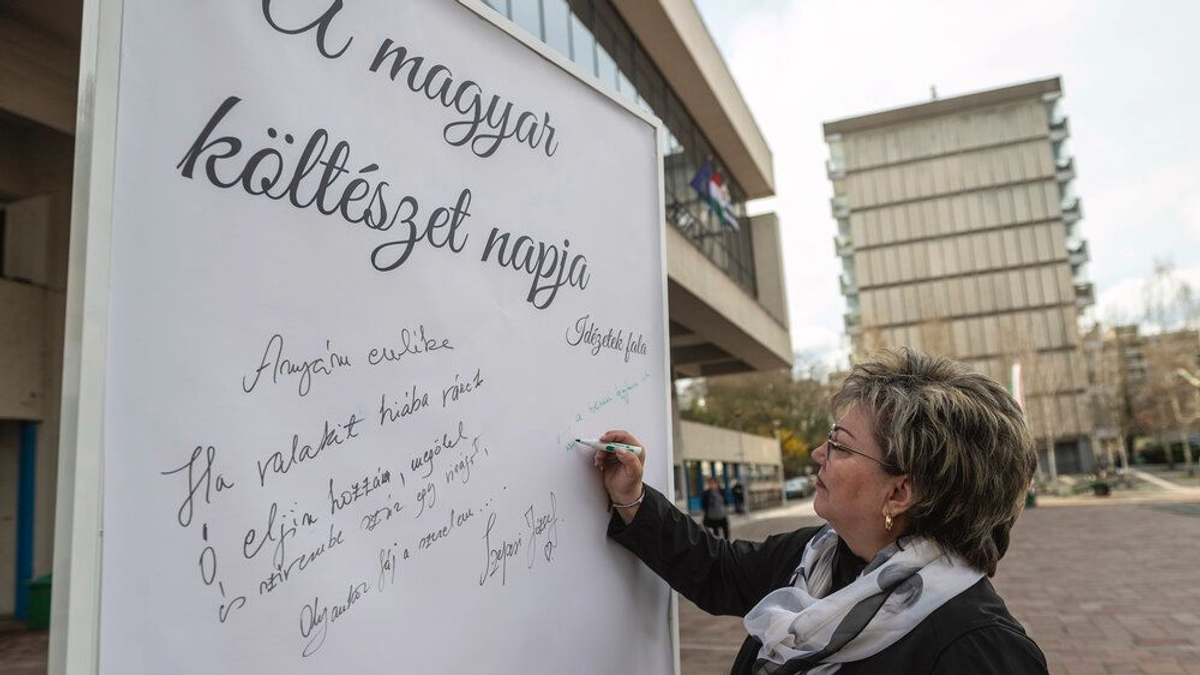 A magyar
költészet napja
Idézetek fala
Anyám emléke
Ha valakit hiába vársz
Ó eljön hozzám, megölel
és szívembe szúr egy
Olyankor fáj a szerelem...
Szepesi József
a